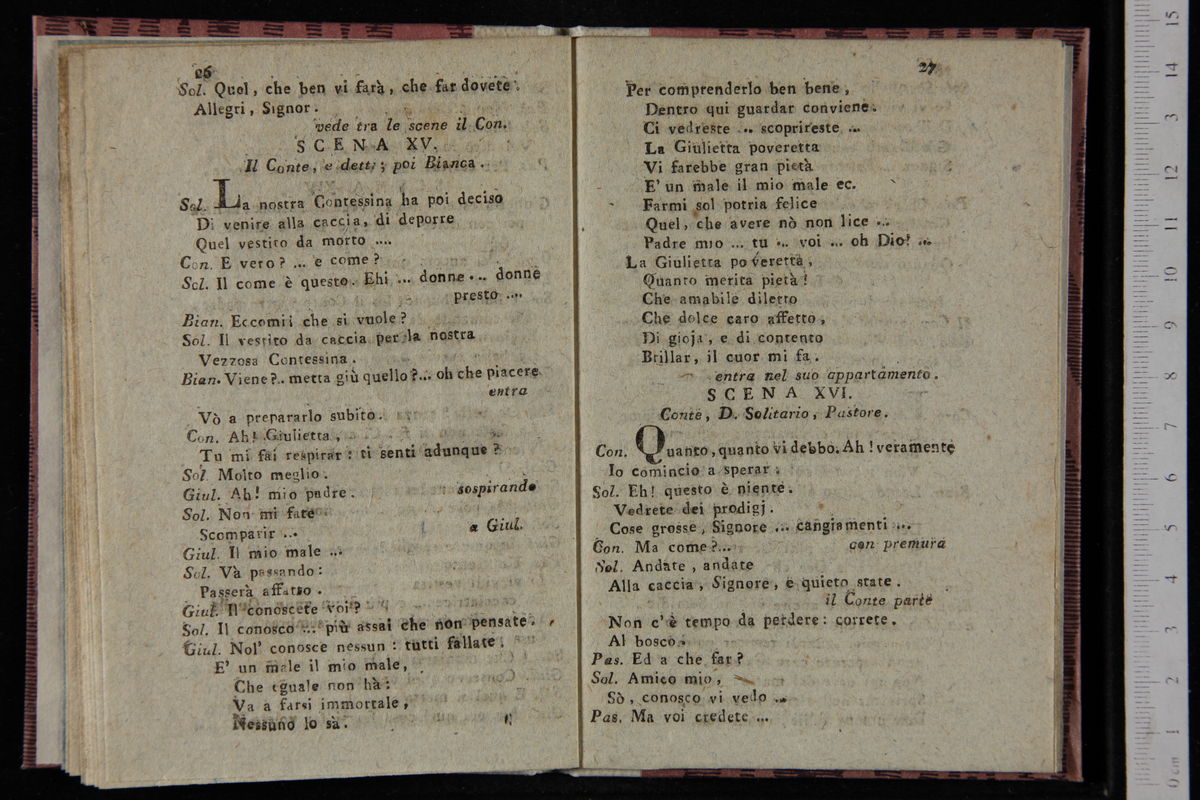 26
Sol. Quel, che ben vi farà, che far dovete.
Allegri, Signor.
vede tra le scene il Con.
SCENA XV.
Il Conte, e detti; poi Bianca.
Sol. La nostra Contessina ha poi deciso
Di venire alla caccia, di deporre
Quel vestito da morto ....
Con. E vero? ... e come?
Sol. Il come è questo. Ehi ... donne ... donne
presto ....
Bian. Eccomi: che si vuole?
Sol. Il vestito da caccia per la nostra
Vezzosa Contessina.
Bian. Viene?.. metta giù quello?... oh che piacere
entra
Vò a prepararlo subito.
Con. Ah! Giulietta,
Tu mi fai respirar: ti senti adunque?
Sol. Molto meglio.
Giul. Ah! mio padre. sospirando
Sol. Non mi fate
Scomparir ... a Giul.
Giul. Il mio male ...
Sol. Và passando:
Passerà affatto.
Giul. Il conoscete voi?
Sol. Il conosco ... più assai che non pensate.
Giul. Nol' conosce nessun: tutti fallate.
E' un male il mio male,
Che eguale non hà:
Va a farsi immortale,
Nessuno lo sà.
27
Per comprenderlo ben bene,
Dentro qui guardar conviene.
Ci vedreste ... scoprireste ...
La Giulietta poveretta
Vi farebbe gran pietà
E' un male il mio male ec.
Farmi sol potria felice
Quel, che avere nò non lice ...
Padre mio ... tu ... voi ... oh Dio! ...
La Giulietta poveretta,
Quanto merita pietà!
Che amabile diletto
Che dolce caro affetto,
Di gioja, e di contento
Brillar, il cuor mi fa.
entra nel suo appartamento.
SCENA XVI.
Conte, D. Solitario, Pastore.
Con. Quanto, quanto vi debbo. Ah! veramente
Io comincio a sperar.
Sol. Eh! questo è niente.
Vedrete dei prodigj.
Cose grosse, Signore ... cangiamenti ...
Con. Ma come?... con premura
Sol. Andate, andate
Alla caccia, Signore, e quieto state.
il Conte parte
Non c'è tempo da perdere: correte.
Al bosco.
Pas. Ed a che far?
Sol. Amico mio,
Sò, conosco vi vedo ...
Pas. Ma voi credete ...
15
14
3
12
11
10
9
8
7
6
5
4
3
2
1
0 cm